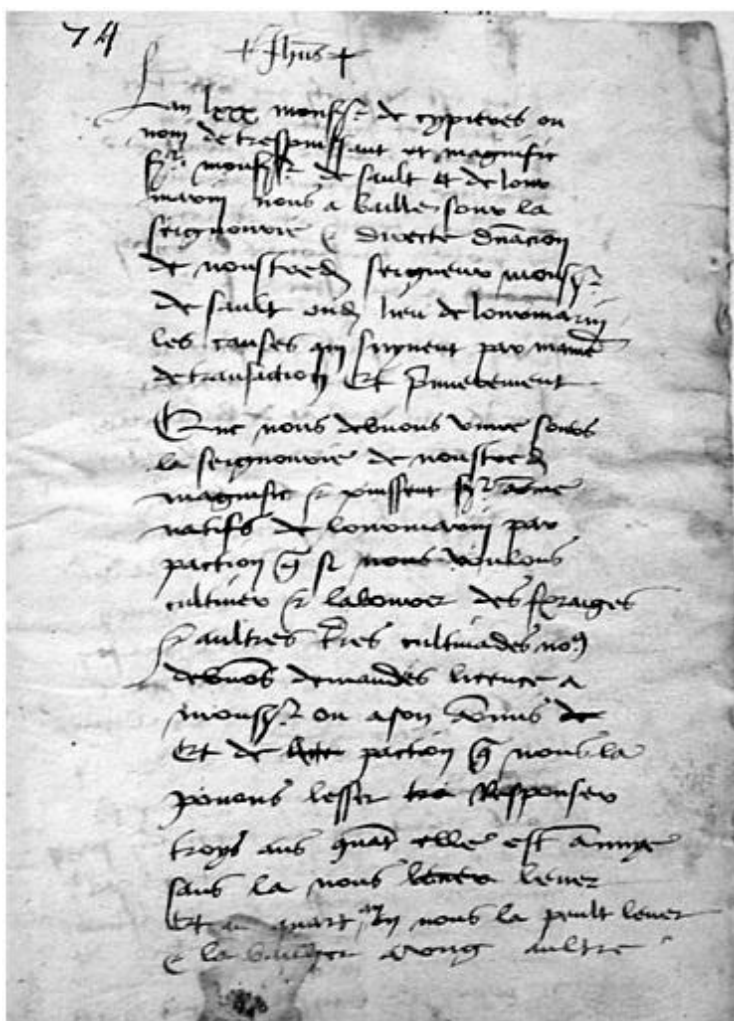 74
+ Jhus +
Lan lxxx monsr de cypieres ou
nom de trespuissant et magnific
sr monsr de sault et de lour
marin nous a baille soux la
seignourie & directe dnacion
de noustred seigneur monsr
de sault oud lieu de lourmarin
les causes qui suyvent par maniè
de transaction Et primierement
Que nous devuons vivre soubs
la seignourie de noustred
magnific et puissent sr come
natifs de lourmarin par
paction q si nous voulons
cultiver et labourer des
et aultres tres cultivades no9
devuons demandes licence a
monsr ou a son comis de
Et de paction q nous la
pouons lesser Responser
troys ans quat elle est
sans la nous lever lever
Et au quart an nous la peult lever
& la bailler a vong aultre